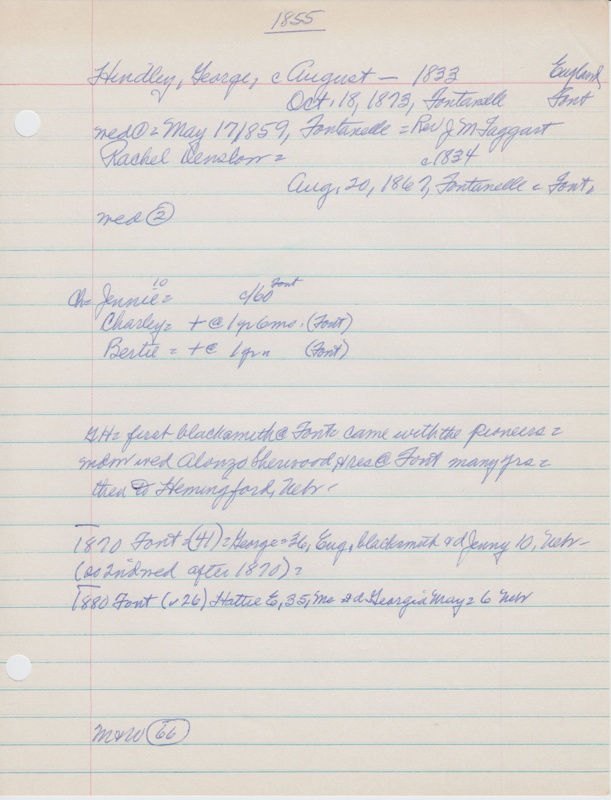 1855
Hindley, George, c August - 1833 England
Oct. 18, 1873, Fontanelle Font
wed ① = May 17, 1859, Fontanelle = Rev J M Taggart
Rachel Denslow = c1834
Aug. 20, 1867, Fontanelle = Font.
wed ②
Ch = Jennie 10 = c/60 Font
Charley = + @ 1 yr 6 mo. (Font)
Bertie = + @ 1 yr " (Font)
GH = first blacksmith @ Font came with the pioneers =
wed Alonzo Sherwood & res @ Font many yrs =
then to Hemingford, Nebr -
1870 Font = (41) = George = 36, Eng, blacksmith & d Jenny 10, Nebr -
(so 2nd wed after 1870) =
1880 Font (v 26) Hattie E, 35, Me & d Georgia May = 6 Nebr
M & W 66